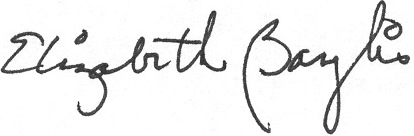 Elizabeth Bayliss